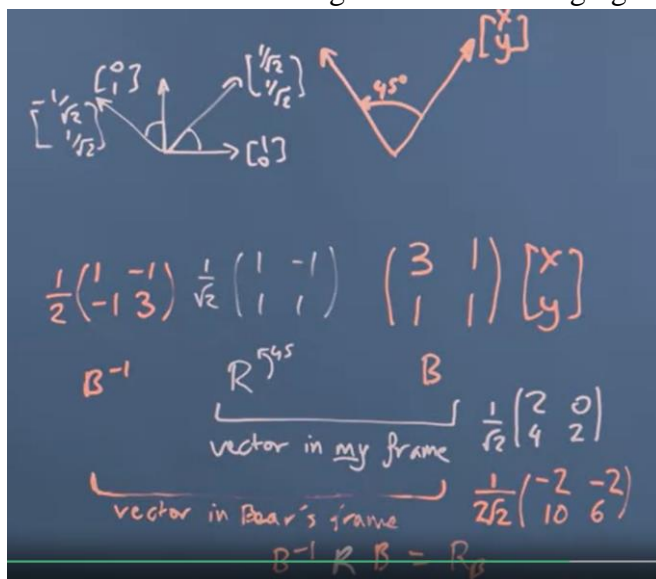 [0 1]
[1/√2 1/√2]
[x y]
45°
[-1/√2 1/√2]
[1 0]
1/2 (1 -1 -1 3) 1/√2 (1 -1 1 1) (3 1 1 1) [x y]
B⁻¹ R 45 B
vector in my frame 1/√2 (2 0 4 2)
vector in Bear's frame 1/2√2 (-2 -2 10 6)
B⁻¹ R B = R_B